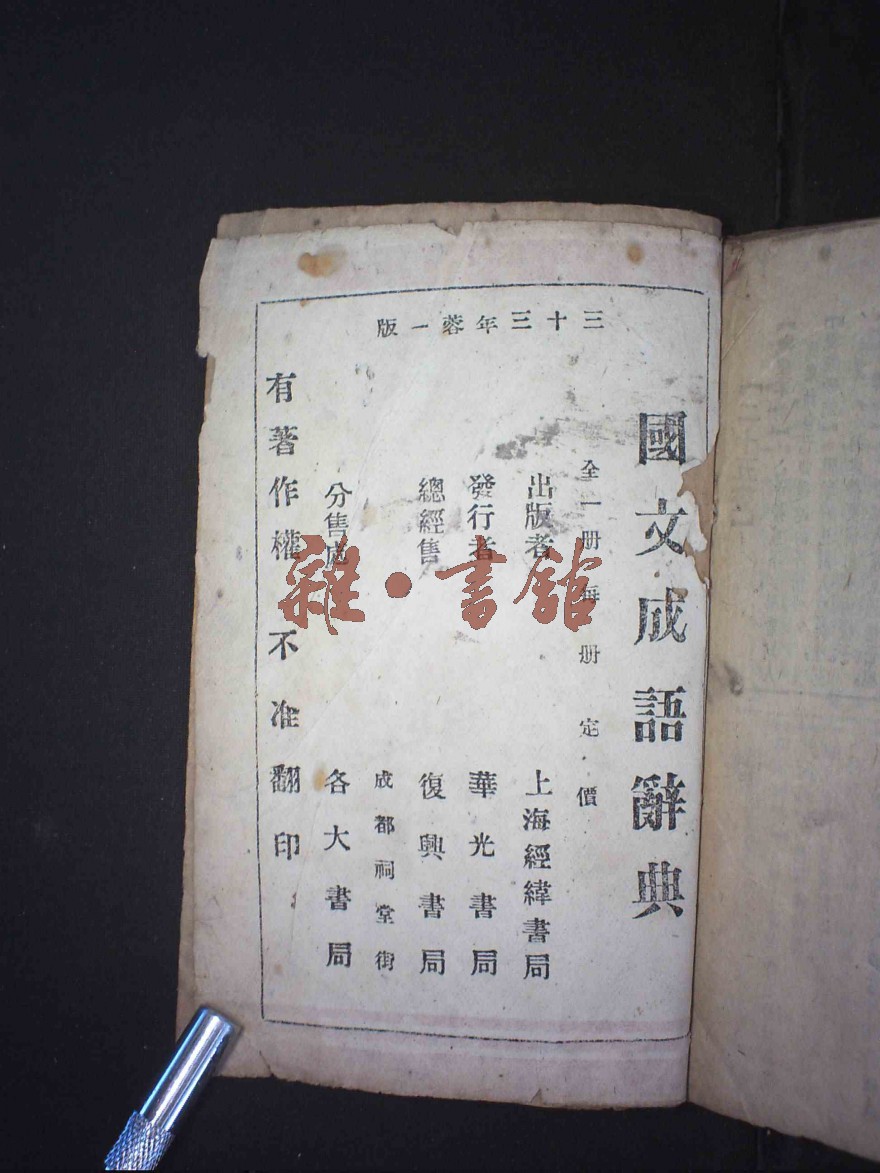 三十三年蓉一版
國文成語辭典
全一册每册定價
出版者 上海經緯書局
發行者 華光書局
總經售 復興書局
成都祠堂街
分售處 各大書局
有著作權 不准翻印
雜·書館